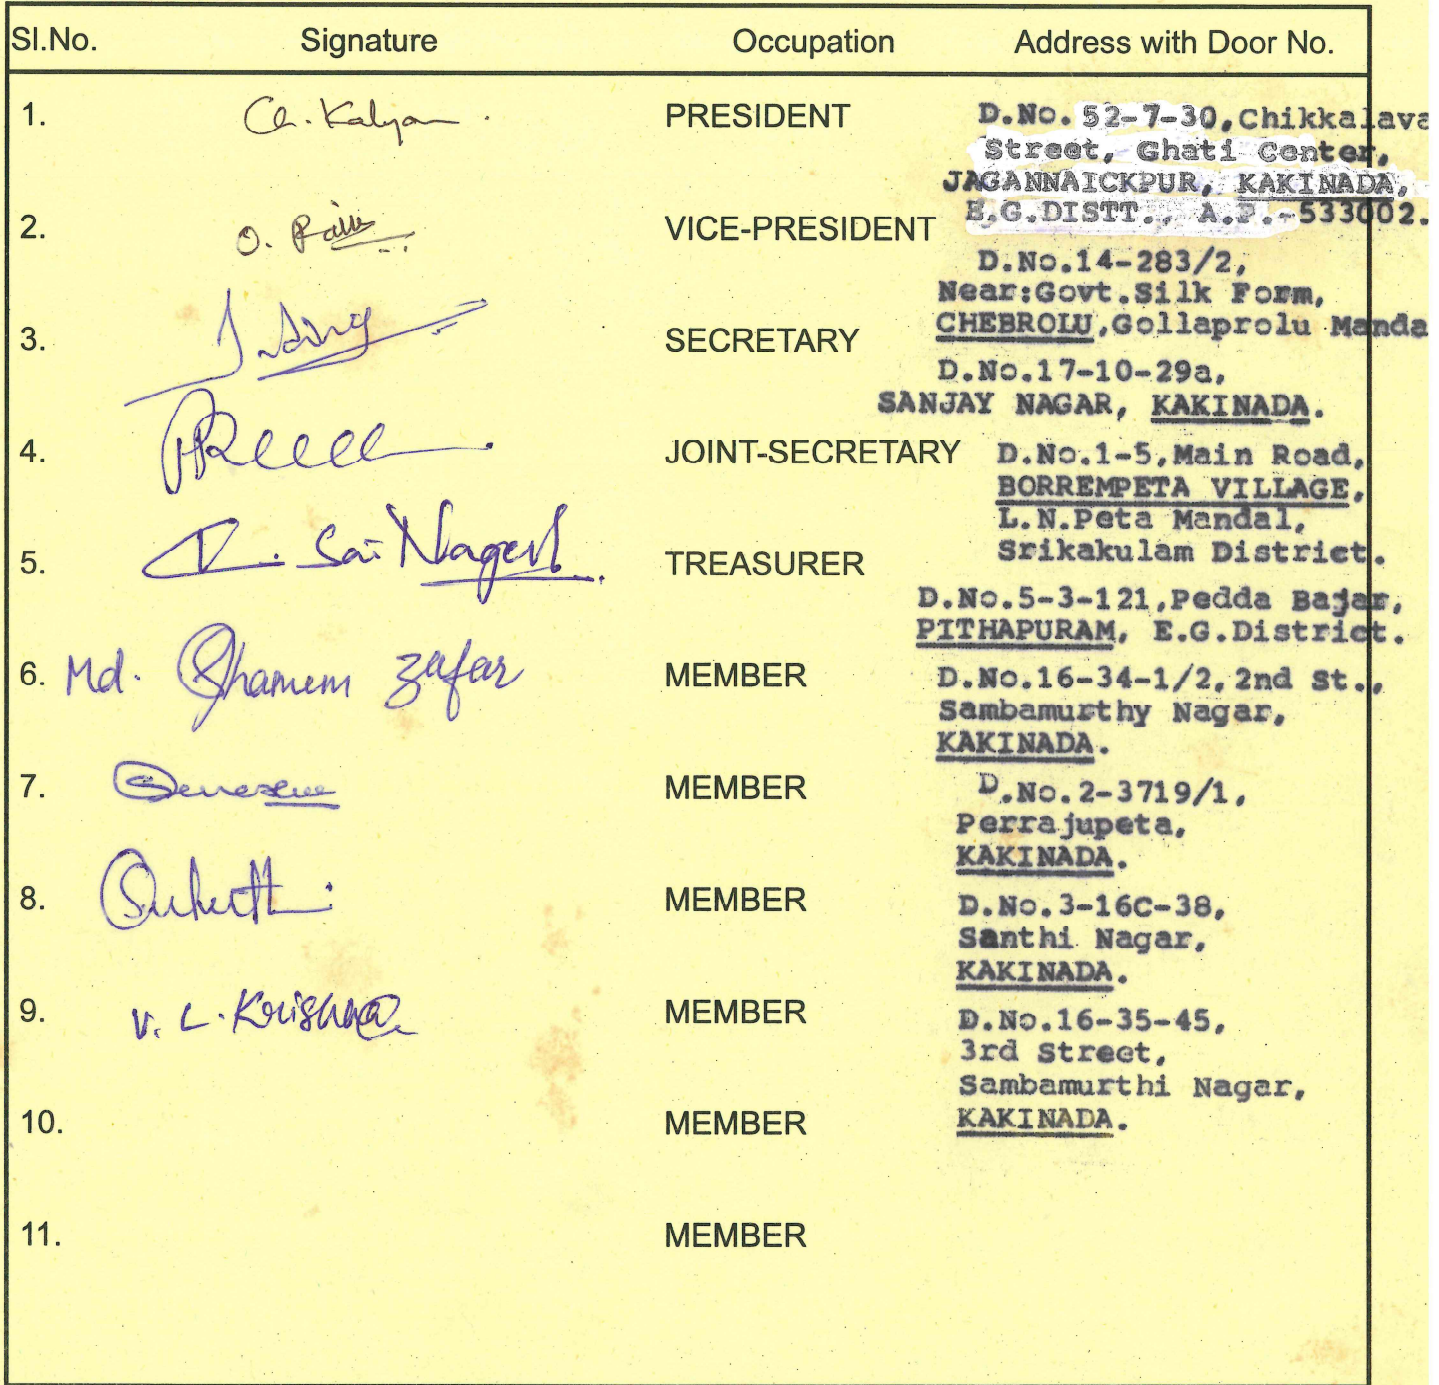 Sl.No. Signature Occupation Address with Door No.
1. Ch. Kalyan. PRESIDENT D.No. 52-7-30, Chikkalava
Street, Ghati Center,
JAGANNAICKPUR, KAKINADA,
E.G.DISTT., A.P.-533002.
2. O. VICE-PRESIDENT
D.No.14-283/2,
Near:Govt.Silk Form,
CHEBROLU,Gollaprolu Manda
3. SECRETARY
D.No.17-10-29a,
SANJAY NAGAR, KAKINADA.
4. JOINT-SECRETARY D.No.1-5,Main Road,
BORREMPETA VILLAGE,
L.N.Peta Mandal,
Srikakulam District.
5. Sai Nagesh TREASURER
D.No.5-3-121,Pedda Bajar,
PITHAPURAM, E.G.District.
6. Md. Shamem Zafar MEMBER D.No.16-34-1/2,2nd St.,
Sambamurthy Nagar,
KAKINADA.
7. MEMBER D.No.2-3719/1,
Perrajupeta,
KAKINADA.
8. MEMBER D.No.3-16C-38,
Santhi Nagar,
KAKINADA.
9. V. L. Krishna MEMBER D.No.16-35-45,
3rd Street,
Sambamurthi Nagar,
10. MEMBER KAKINADA.
11. MEMBER